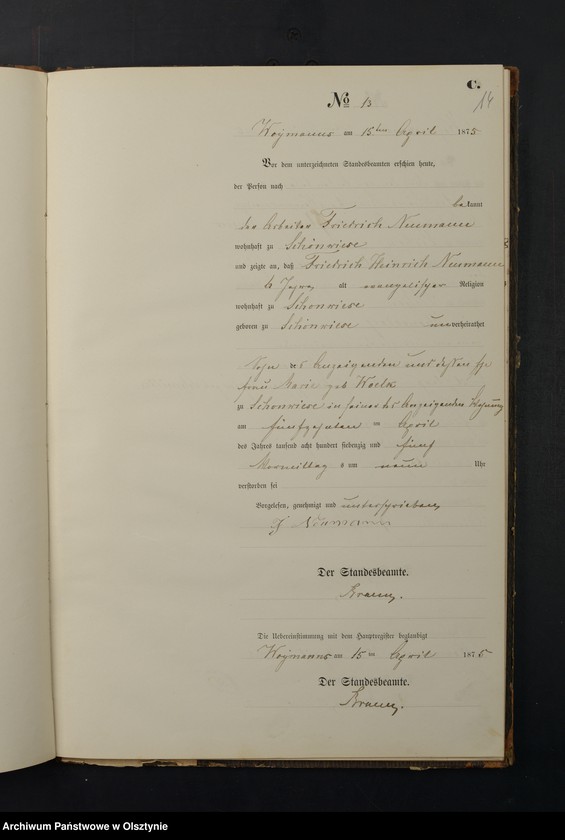 C.
14
No 13
Woymanns am 15ten April 1875
Vor dem unterzeichneten Standesbeamten erschien heute,
der Person nach
bekannt
der Arbeiter Friedrich Neumann
wohnhaft zu Schönwiese
und zeigte an, daß Friedrich Heinrich Neumann
alt evangelischer Religion
wohnhaft zu Schönwiese
geboren zu Schönwiese unverheirathet
Sohn des Anzeigenden und dessen Ehe
frau Marie geb
zu Schönwiese in seiner des Anzeigenden Wohnung
am fünfzehnten ten April
des Jahres tausend acht hundert siebenzig und fünf
Vormittags um neun Uhr
verstorben sei
Vorgelesen, genehmigt und unterschrieben
F Neumann
Der Standesbeamte.
Die Uebereinstimmung mit dem Hauptregister beglaubigt
Woymanns am 15 ten April 1875
Der Standesbeamte.
Archiwum Państwowe w Olsztynie